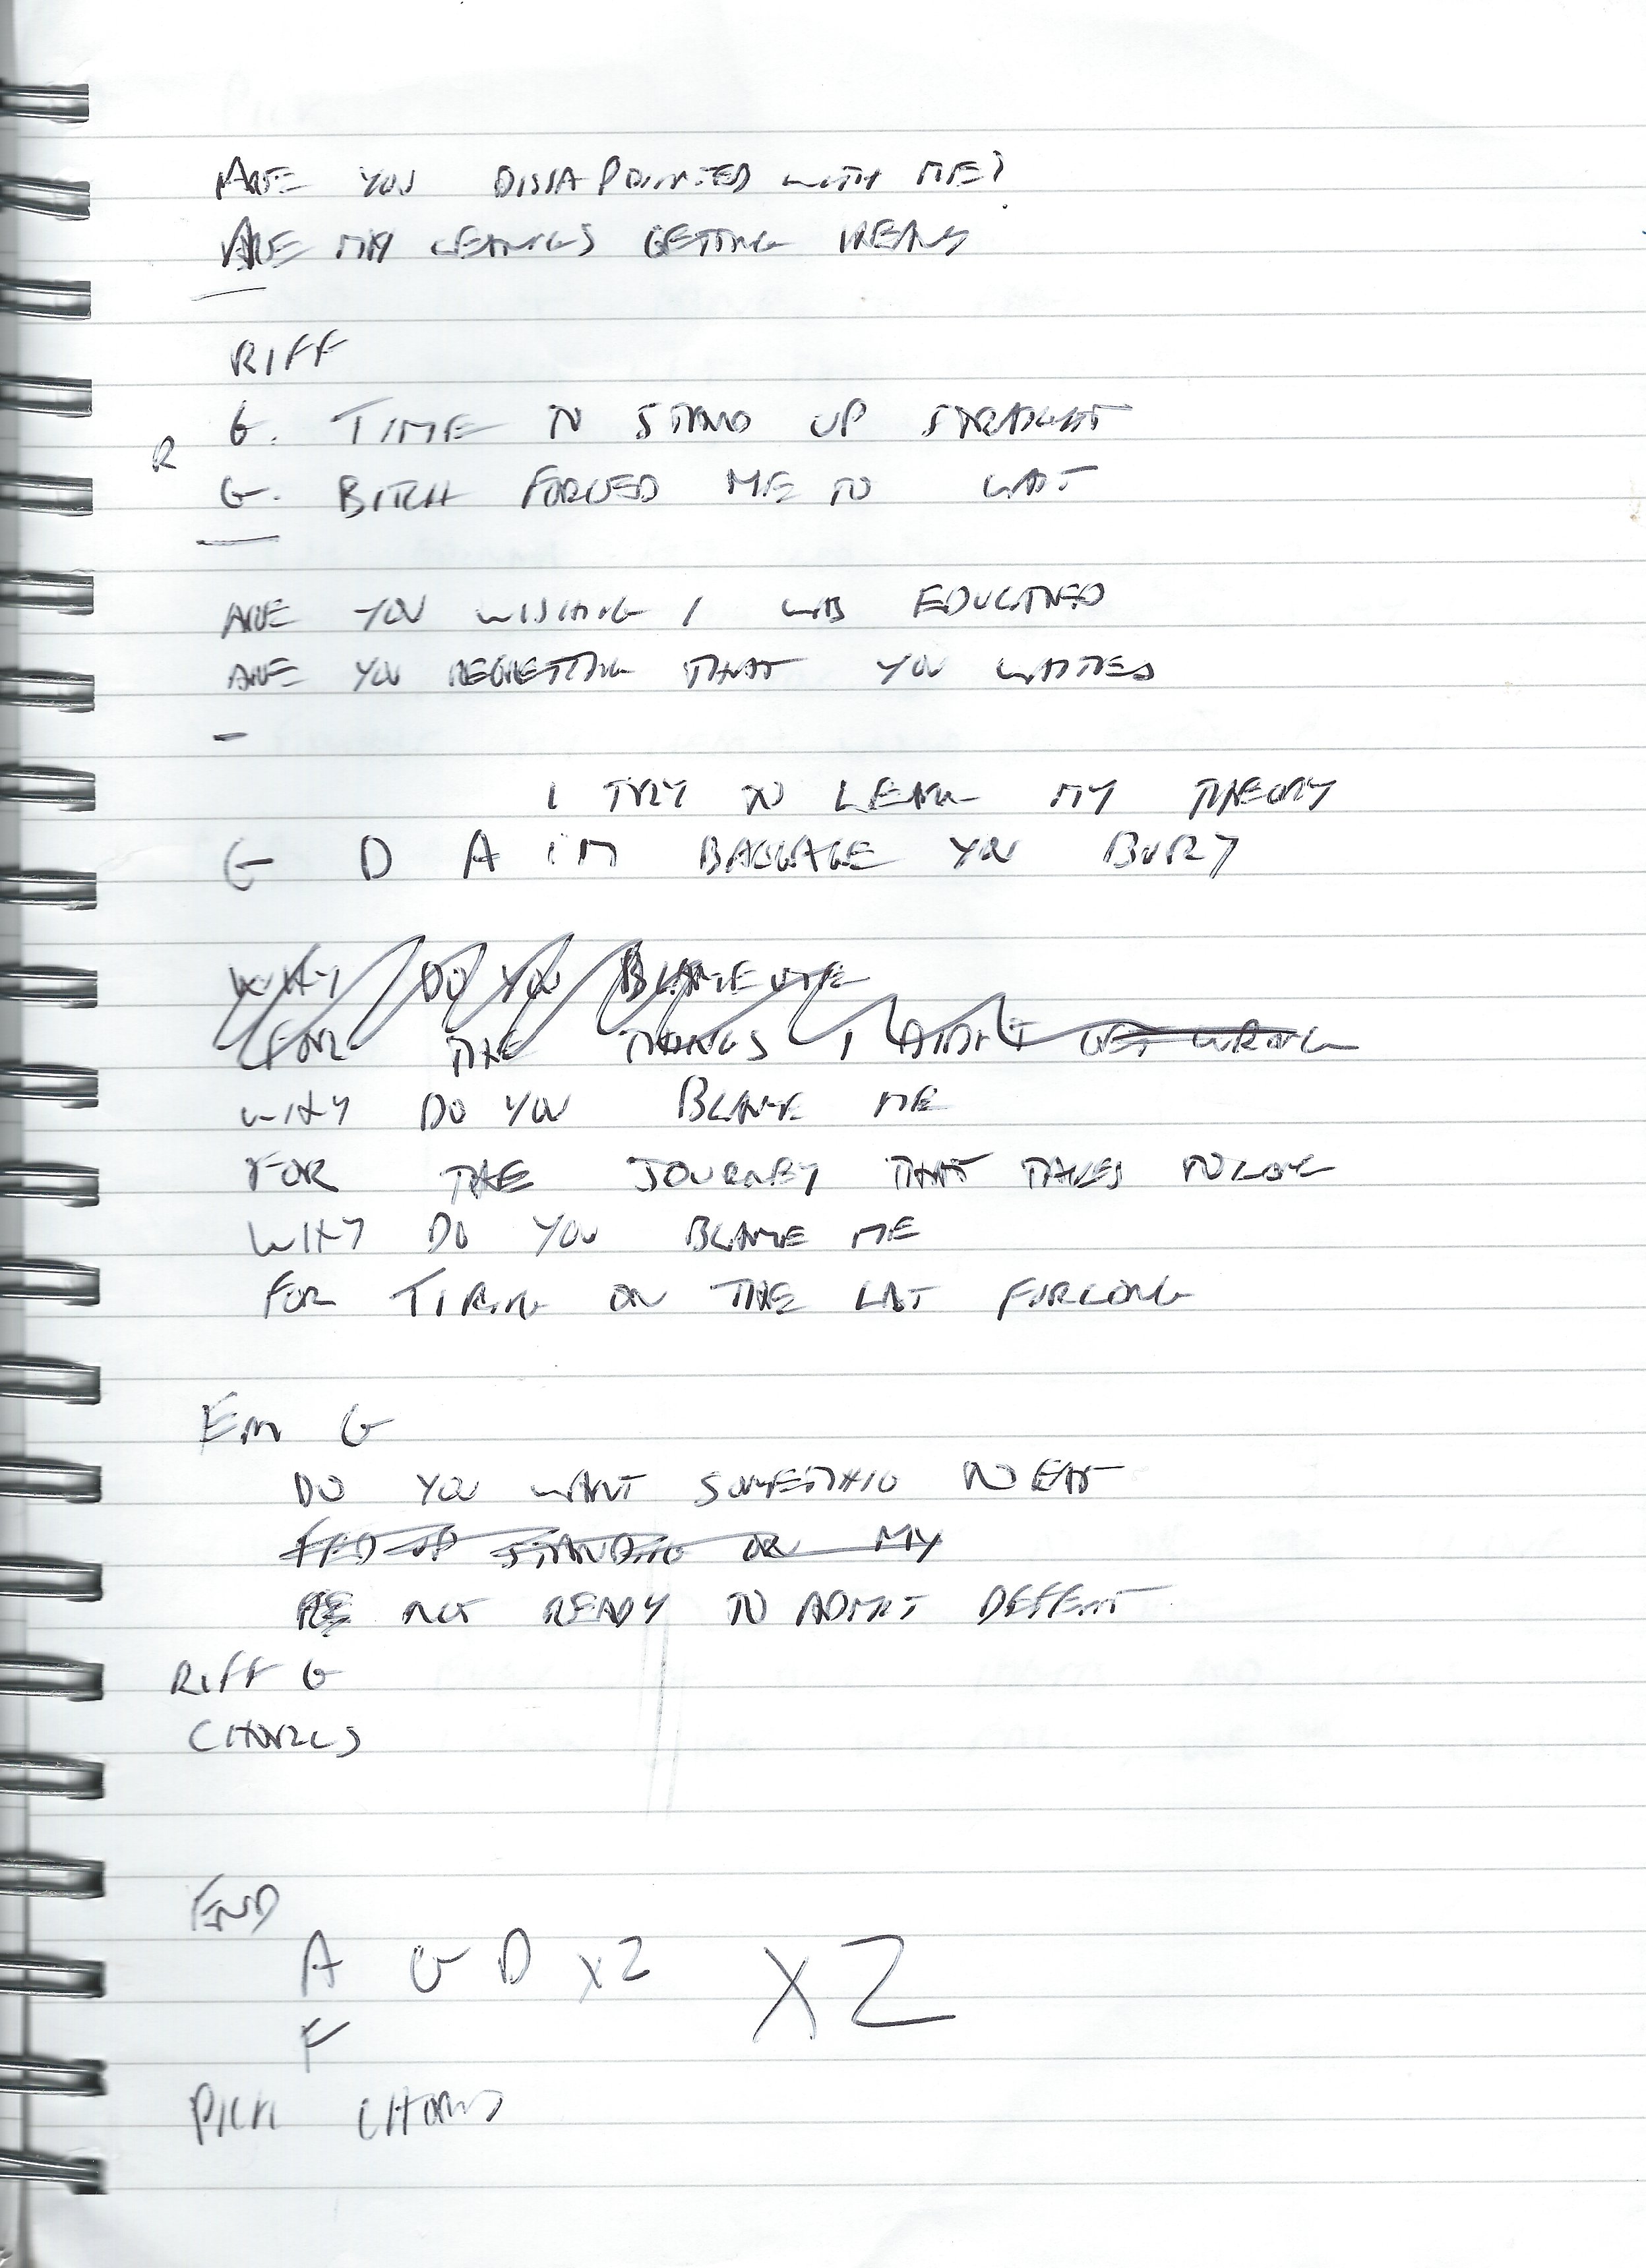 ARE YOU DISSAPOINTED WITH ME?
ARE MY GETTING
RIFF
G. TIME TO STAND UP STRAIGHT
R
G. BITCH FORCED ME TO WAIT
ARE YOU WISHING I WAS EDUCATED
ARE YOU REGRETTING THAT YOU WAITED
I TRY TO LEARN MY THEORY
G D A I'M BAGGAGE YOU BURY
WHY DO YOU BLAME ME
FOR THE THINGS I DIDN'T GET WRONG
WHY DO YOU BLAME ME
FOR THE JOURNEY THAT TAKES TO LONG
WHY DO YOU BLAME ME
FOR TIRING ON THE LAST FURLONG
Em G
DO YOU WANT SOMETHING TO EAT
FED UP STANDING ON MY
NOT READY TO ADMIT DEFEAT
RIFF G
CHORUS
END
A G D x2 x2
F
PICK CHORUS